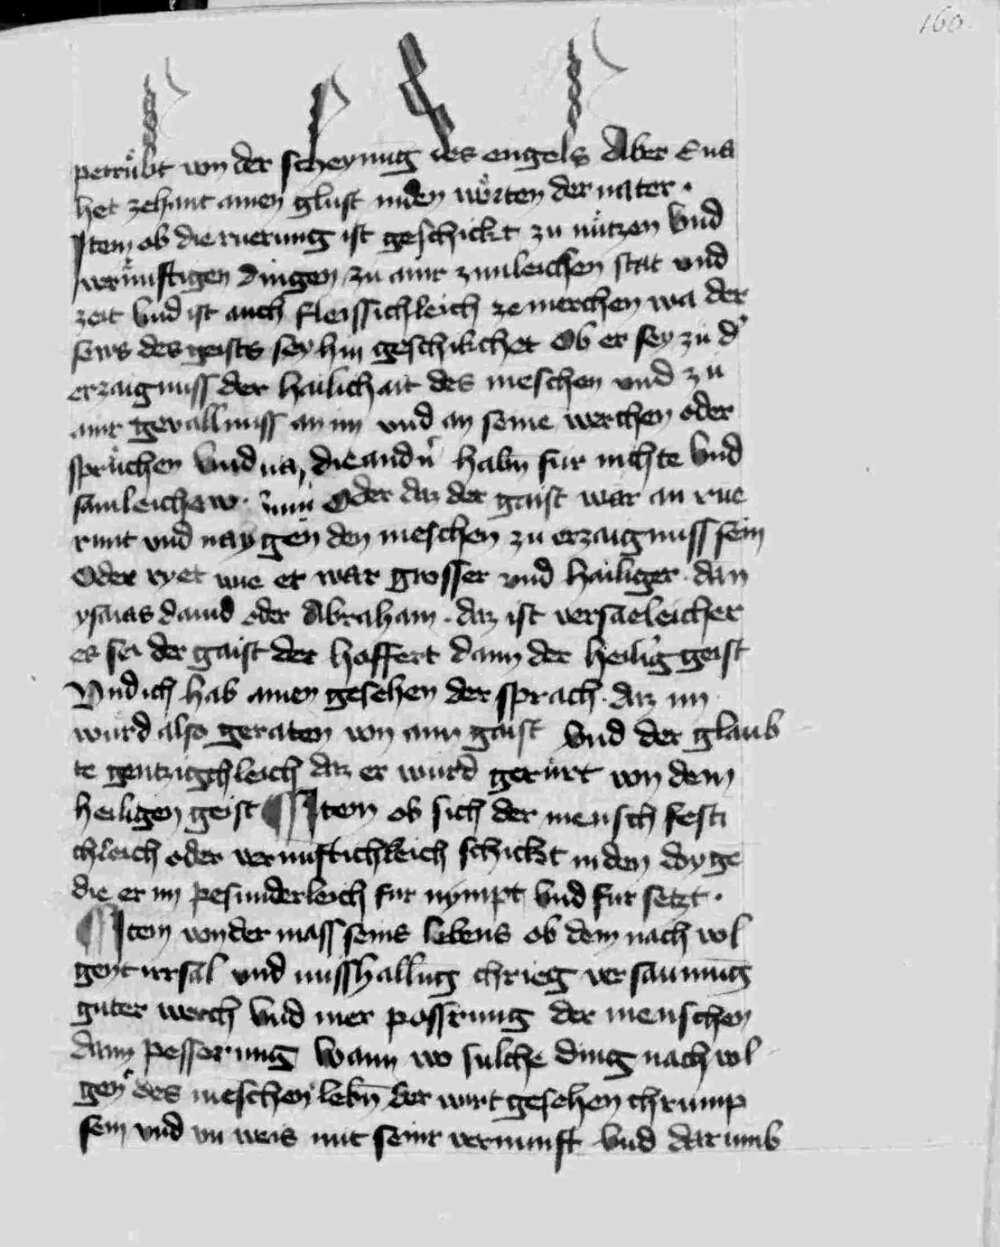 160
petrůbt von der scheynung des engels Aber Eua
het zehant ainen glust in den wörten der nater.
Item ob die ruerung ist geschickt zu nützen Vnd
vernüftigen dingen zu ainr zimleichen stat vnd
zeit Vnd ist auch fleissichleich ze merchen wa der
sews des geists sey hin geschikchet Ob er sey zu d'
erzaignuss der hailichait des meschen vnd zu
ainr geuallnuss an im vnd an seine werchen oder
sprüchen Vnd die andn̄ habn̄ für nichte Vnd
Oder daz der gaist wär an rue
rmit vnd naygen den meschen zu erzaignuss sein
Oder ryet wie er wär grosser vnd hailiger dan
ysaias dauid oder Abraham. daz ist versaeleicher
es sei der gaist der hoffert dann der heilig geist
Vnd ich hab ainen gesehen der sprach. daz im
würd also geraten von aim gaist Vnd der glaub
te gentzigchleich daz er würd gerürt von dem
heiligen geist ¶ Item ob sich der mensch festi
chleich oder vernuftichleich schickt in den
die er im pesunderleich fur nympt Vnd fur setzt.
¶ Item von der mass seins lebens ob dem nach vol
gent irsal vnd misshallūg chrieg versaumūg
guter werch Vnd mer possrung der menschen
dann pesserung Wann wo sulche ding nach vol
gen des meschen lebn̄ der wirt gesehen chrump
sein vnd vn weis mit seinr vernunft Vnd darumb